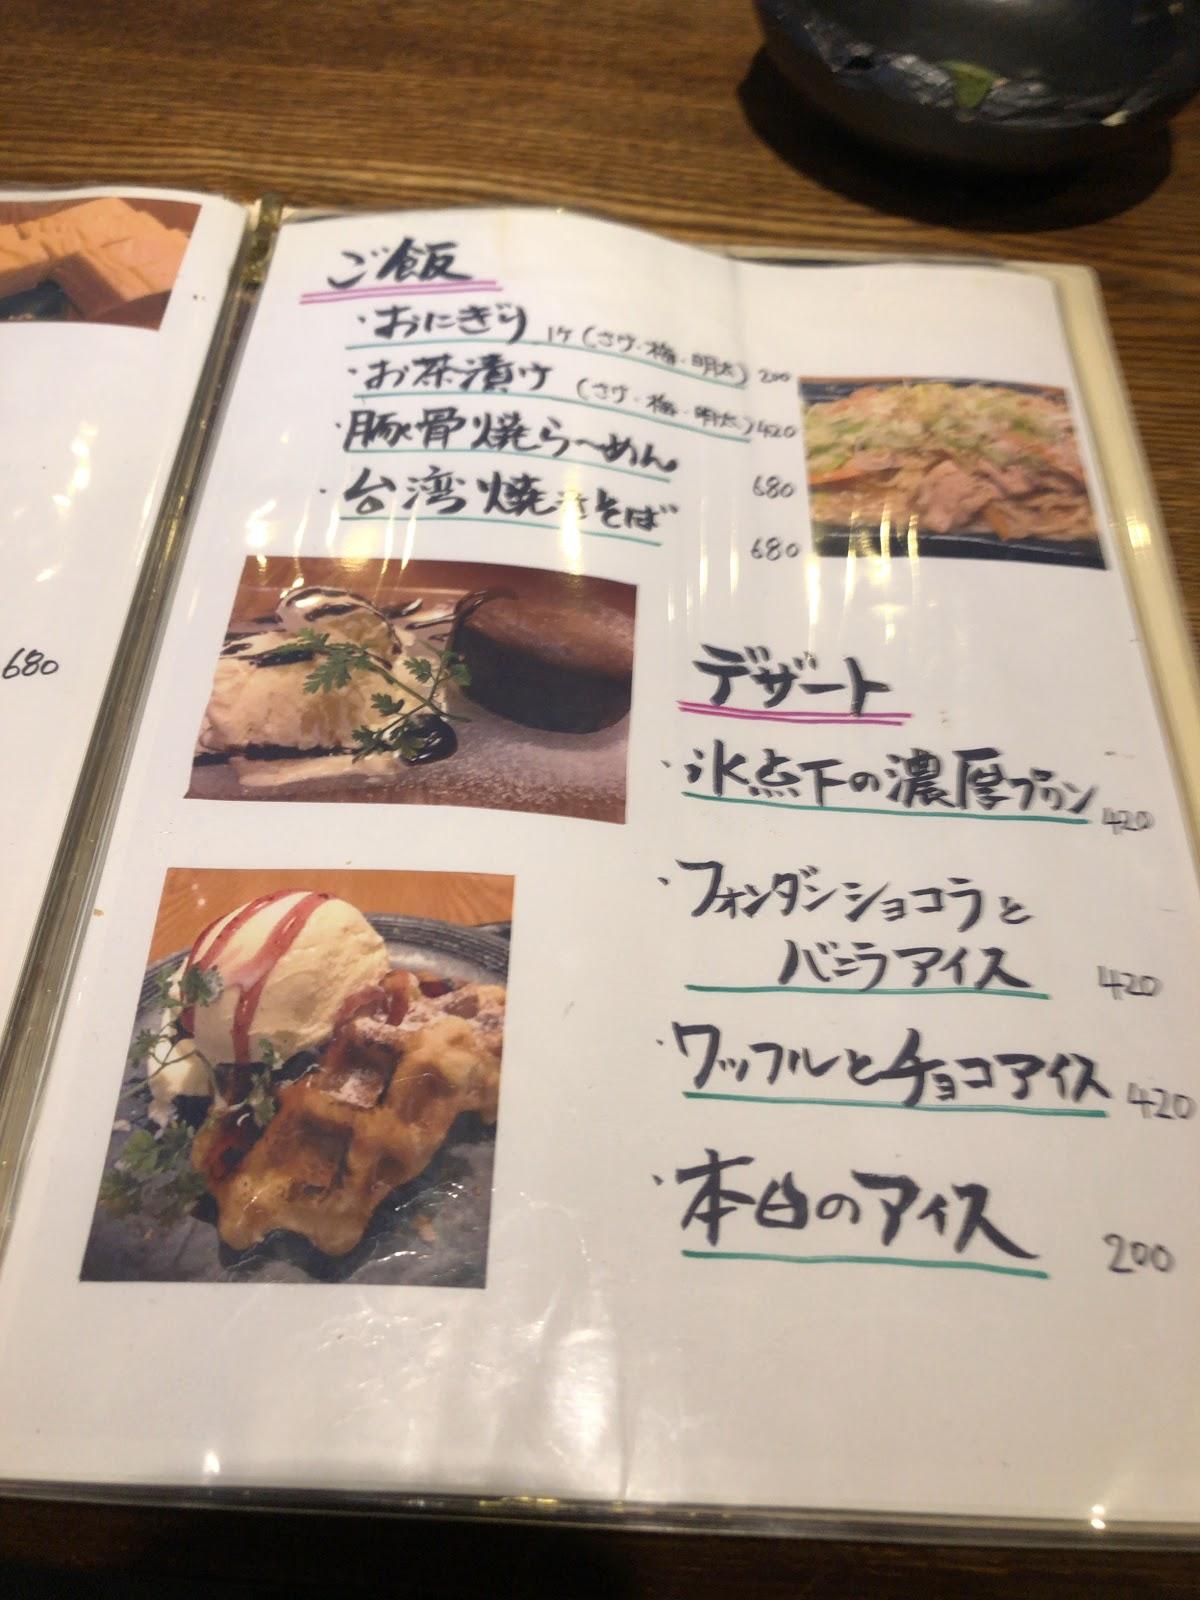 680
ご飯
・おにぎり 1ケ(さけ・梅・明太) 200
・お茶漬け (さけ・梅・明太) 420
・豚骨焼ら〜めん 680
・台湾焼きそば 680
デザート
・氷点下の濃厚プリン 420
・フォンダンショコラと
バニラアイス 420
・ワッフルとチョコアイス 420
・本日のアイス 200